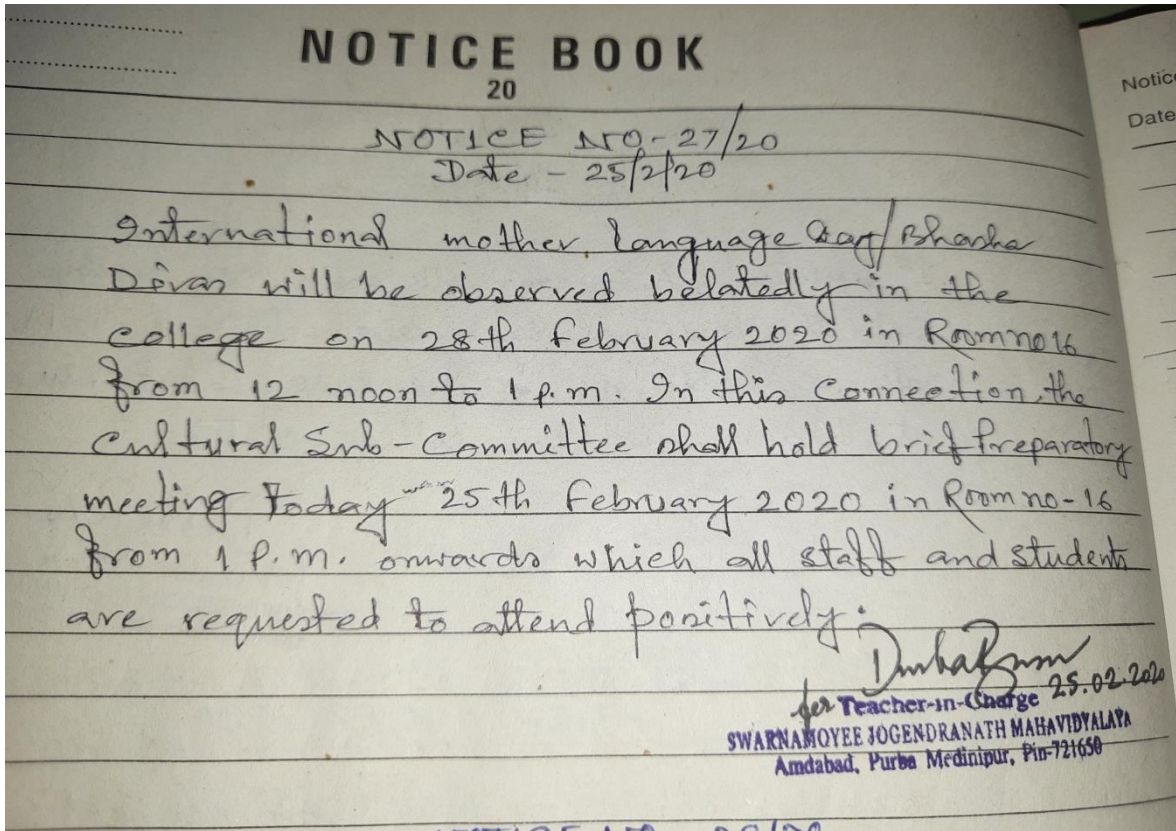 NOTICE BOOK
20
Notice
Date
NOTICE NO-27/20
Date - 25/2/20
International mother language Day/Bhasha
Divas will be observed belatedly in the
college on 28th february 2020 in Room no 16
from 12 noon to 1 p.m. In this Connection, the
Cultural Sub-Committee shall hold brief Preparatory
meeting Today 25th february 2020 in Room no-16
from 1 P.m. onwards which all staff and students
are requested to attend positively.
25.02.2020
for Teacher-in-Charge
SWARNAMOYEE JOGENDRANATH MAHAVIDYALAYA
Amdabad, Purba Medinipur, Pin-721650